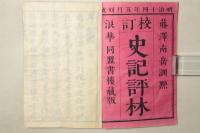 明治十四年五月刻成
藤澤南岳訓點
校訂
史記評林
浪華同盟書樓藏版